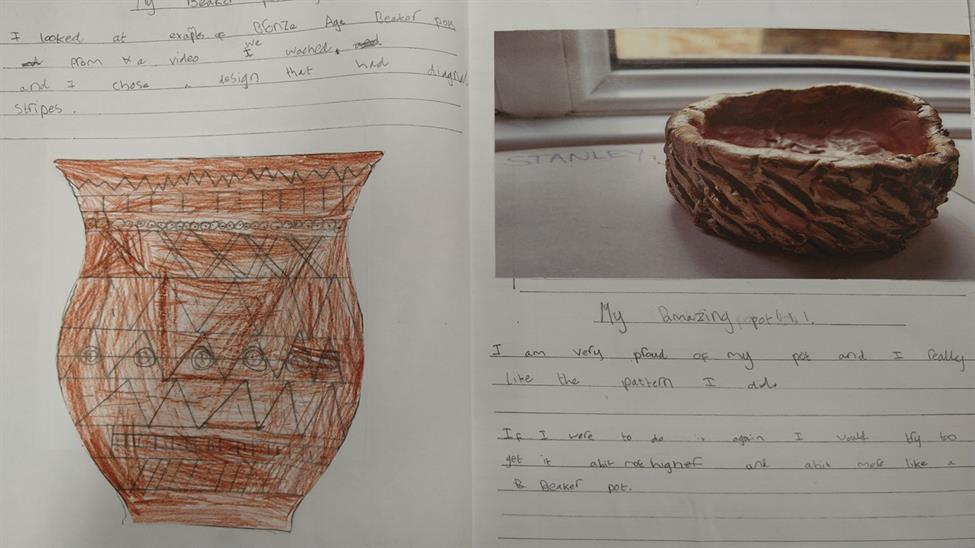 My Beaker
I looked at exampls of Bronze Age Beaker pots
from a video we wached,
and I chose a design that had diagnal
stripes.
STANLEY
My amazing pot!!!
I am very proud of my pot and I really
like the pattern I did.
If I were to do it again I would try too
get it abit higher and abit more like a
Beaker pot.